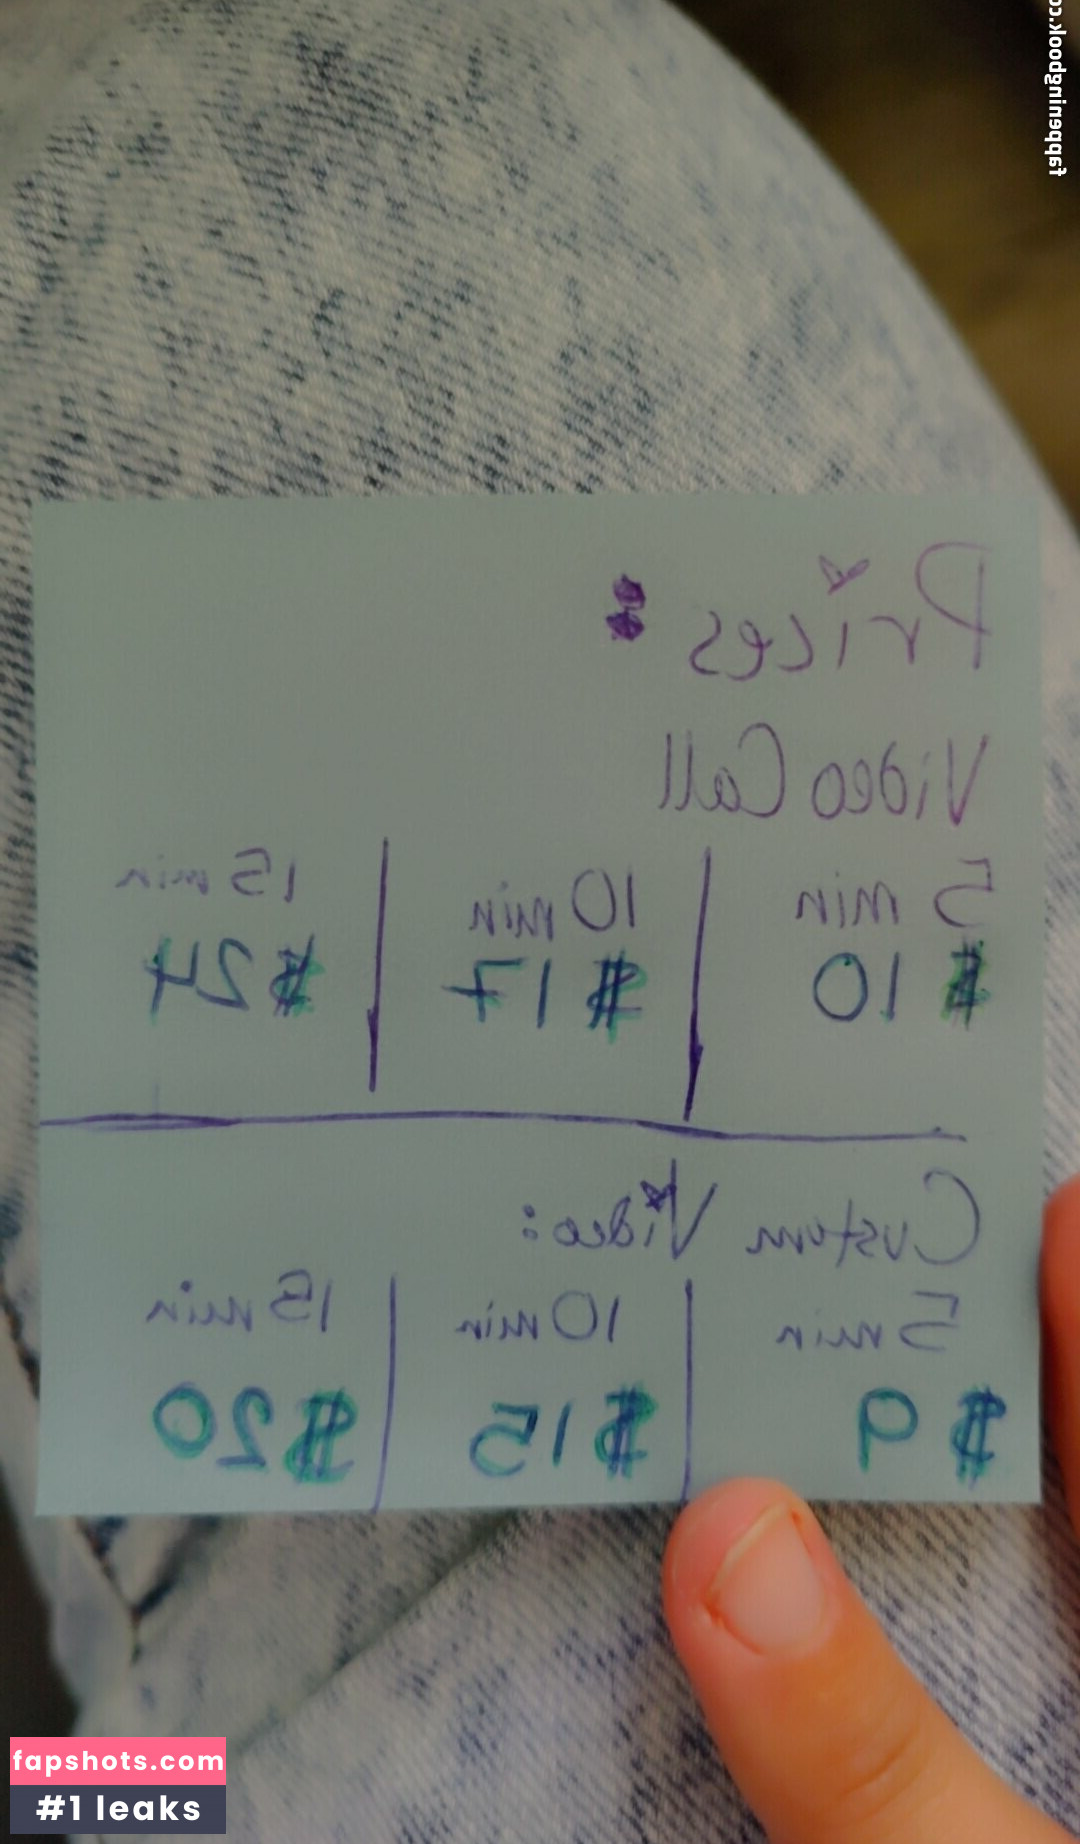 fappeningbook.co
Prices:
Video Call
5 min | 10 min | 15 min
$10 | $17 | $24
Custom Video:
5 min | 10 min | 15 min
$9 | $15 | $20
fapshots.com
#1 leaks